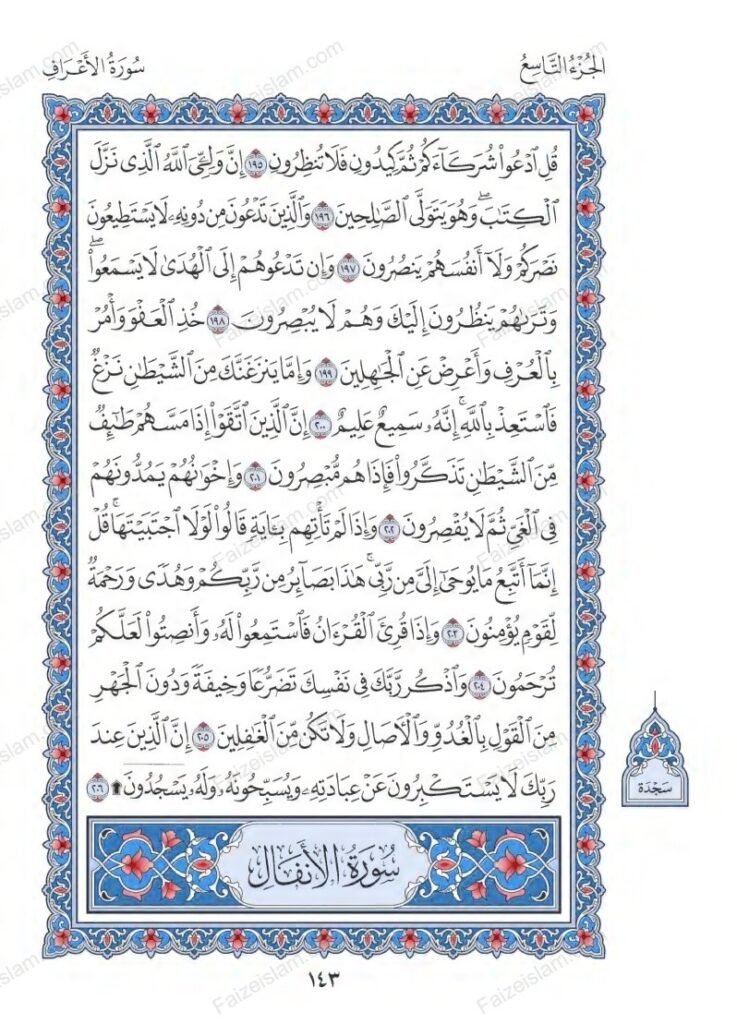 الجُزْءُ التَّاسِعُ
سُورَةُ الأَعْرَافِ
قُلِ ٱدْعُوا۟ شُرَكَآءَكُمْ ثُمَّ كِيدُونِ فَلَا تُنظِرُونِ ١٩٥ إِنَّ وَلِـِّۧىَ ٱللَّهُ ٱلَّذِى نَزَّلَ
ٱلْكِتَٰبَ ۖ وَهُوَ يَتَوَلَّى ٱلصَّٰلِحِينَ ١٩٦ وَٱلَّذِينَ تَدْعُونَ مِن دُونِهِۦ لَا يَسْتَطِيعُونَ
نَصْرَكُمْ وَلَآ أَنفُسَهُمْ يَنصُرُونَ ١٩٧ وَإِن تَدْعُوهُمْ إِلَى ٱلْهُدَىٰ لَا يَسْمَعُوا۟ ۖ
وَتَرَىٰهُمْ يَنظُرُونَ إِلَيْكَ وَهُمْ لَا يُبْصِرُونَ ١٩٨ خُذِ ٱلْعَفْوَ وَأْمُرْ
بِٱلْعُرْفِ وَأَعْرِضْ عَنِ ٱلْجَٰهِلِينَ ١٩٩ وَإِمَّا يَنزَغَنَّكَ مِنَ ٱلشَّيْطَٰنِ نَزْغٌ
فَٱسْتَعِذْ بِٱللَّهِ ۚ إِنَّهُۥ سَمِيعٌ عَلِيمٌ ٢٠٠ إِنَّ ٱلَّذِينَ ٱتَّقَوْا۟ إِذَا مَسَّهُمْ طَٰٓئِفٌ
مِّنَ ٱلشَّيْطَٰنِ تَذَكَّرُوا۟ فَإِذَا هُم مُّبْصِرُونَ ٢٠١ وَإِخْوَٰنُهُمْ يَمُدُّونَهُمْ
فِى ٱلْغَىِّ ثُمَّ لَا يُقْصِرُونَ ٢٠٢ وَإِذَا لَمْ تَأْتِهِم بِـَٔايَةٍ قَالُوا۟ لَوْلَا ٱجْتَبَيْتَهَا ۚ قُلْ
إِنَّمَآ أَتَّبِعُ مَا يُوحَىٰٓ إِلَىَّ مِن رَّبِّى ۚ هَٰذَا بَصَآئِرُ مِن رَّبِّكُمْ وَهُدًى وَرَحْمَةٌ
لِّقَوْمٍ يُؤْمِنُونَ ٢٠٣ وَإِذَا قُرِئَ ٱلْقُرْءَانُ فَٱسْتَمِعُوا۟ لَهُۥ وَأَنصِتُوا۟ لَعَلَّكُمْ
تُرْحَمُونَ ٢٠٤ وَٱذْكُر رَّبَّكَ فِى نَفْسِكَ تَضَرُّعًا وَخِيفَةً وَدُونَ ٱلْجَهْرِ
مِنَ ٱلْقَوْلِ بِٱلْغُدُوِّ وَٱلْءَاصَالِ وَلَا تَكُن مِّنَ ٱلْغَٰفِلِينَ ٢٠٥ إِنَّ ٱلَّذِينَ عِندَ
رَبِّكَ لَا يَسْتَكْبِرُونَ عَنْ عِبَادَتِهِۦ وَيُسَبِّحُونَهُۥ وَلَهُۥ يَسْجُدُونَ ۩ ٢٠٦
سَجْدَة
سُورَةُ الأَنفَالِ
١٤٣
Faizeislam.com